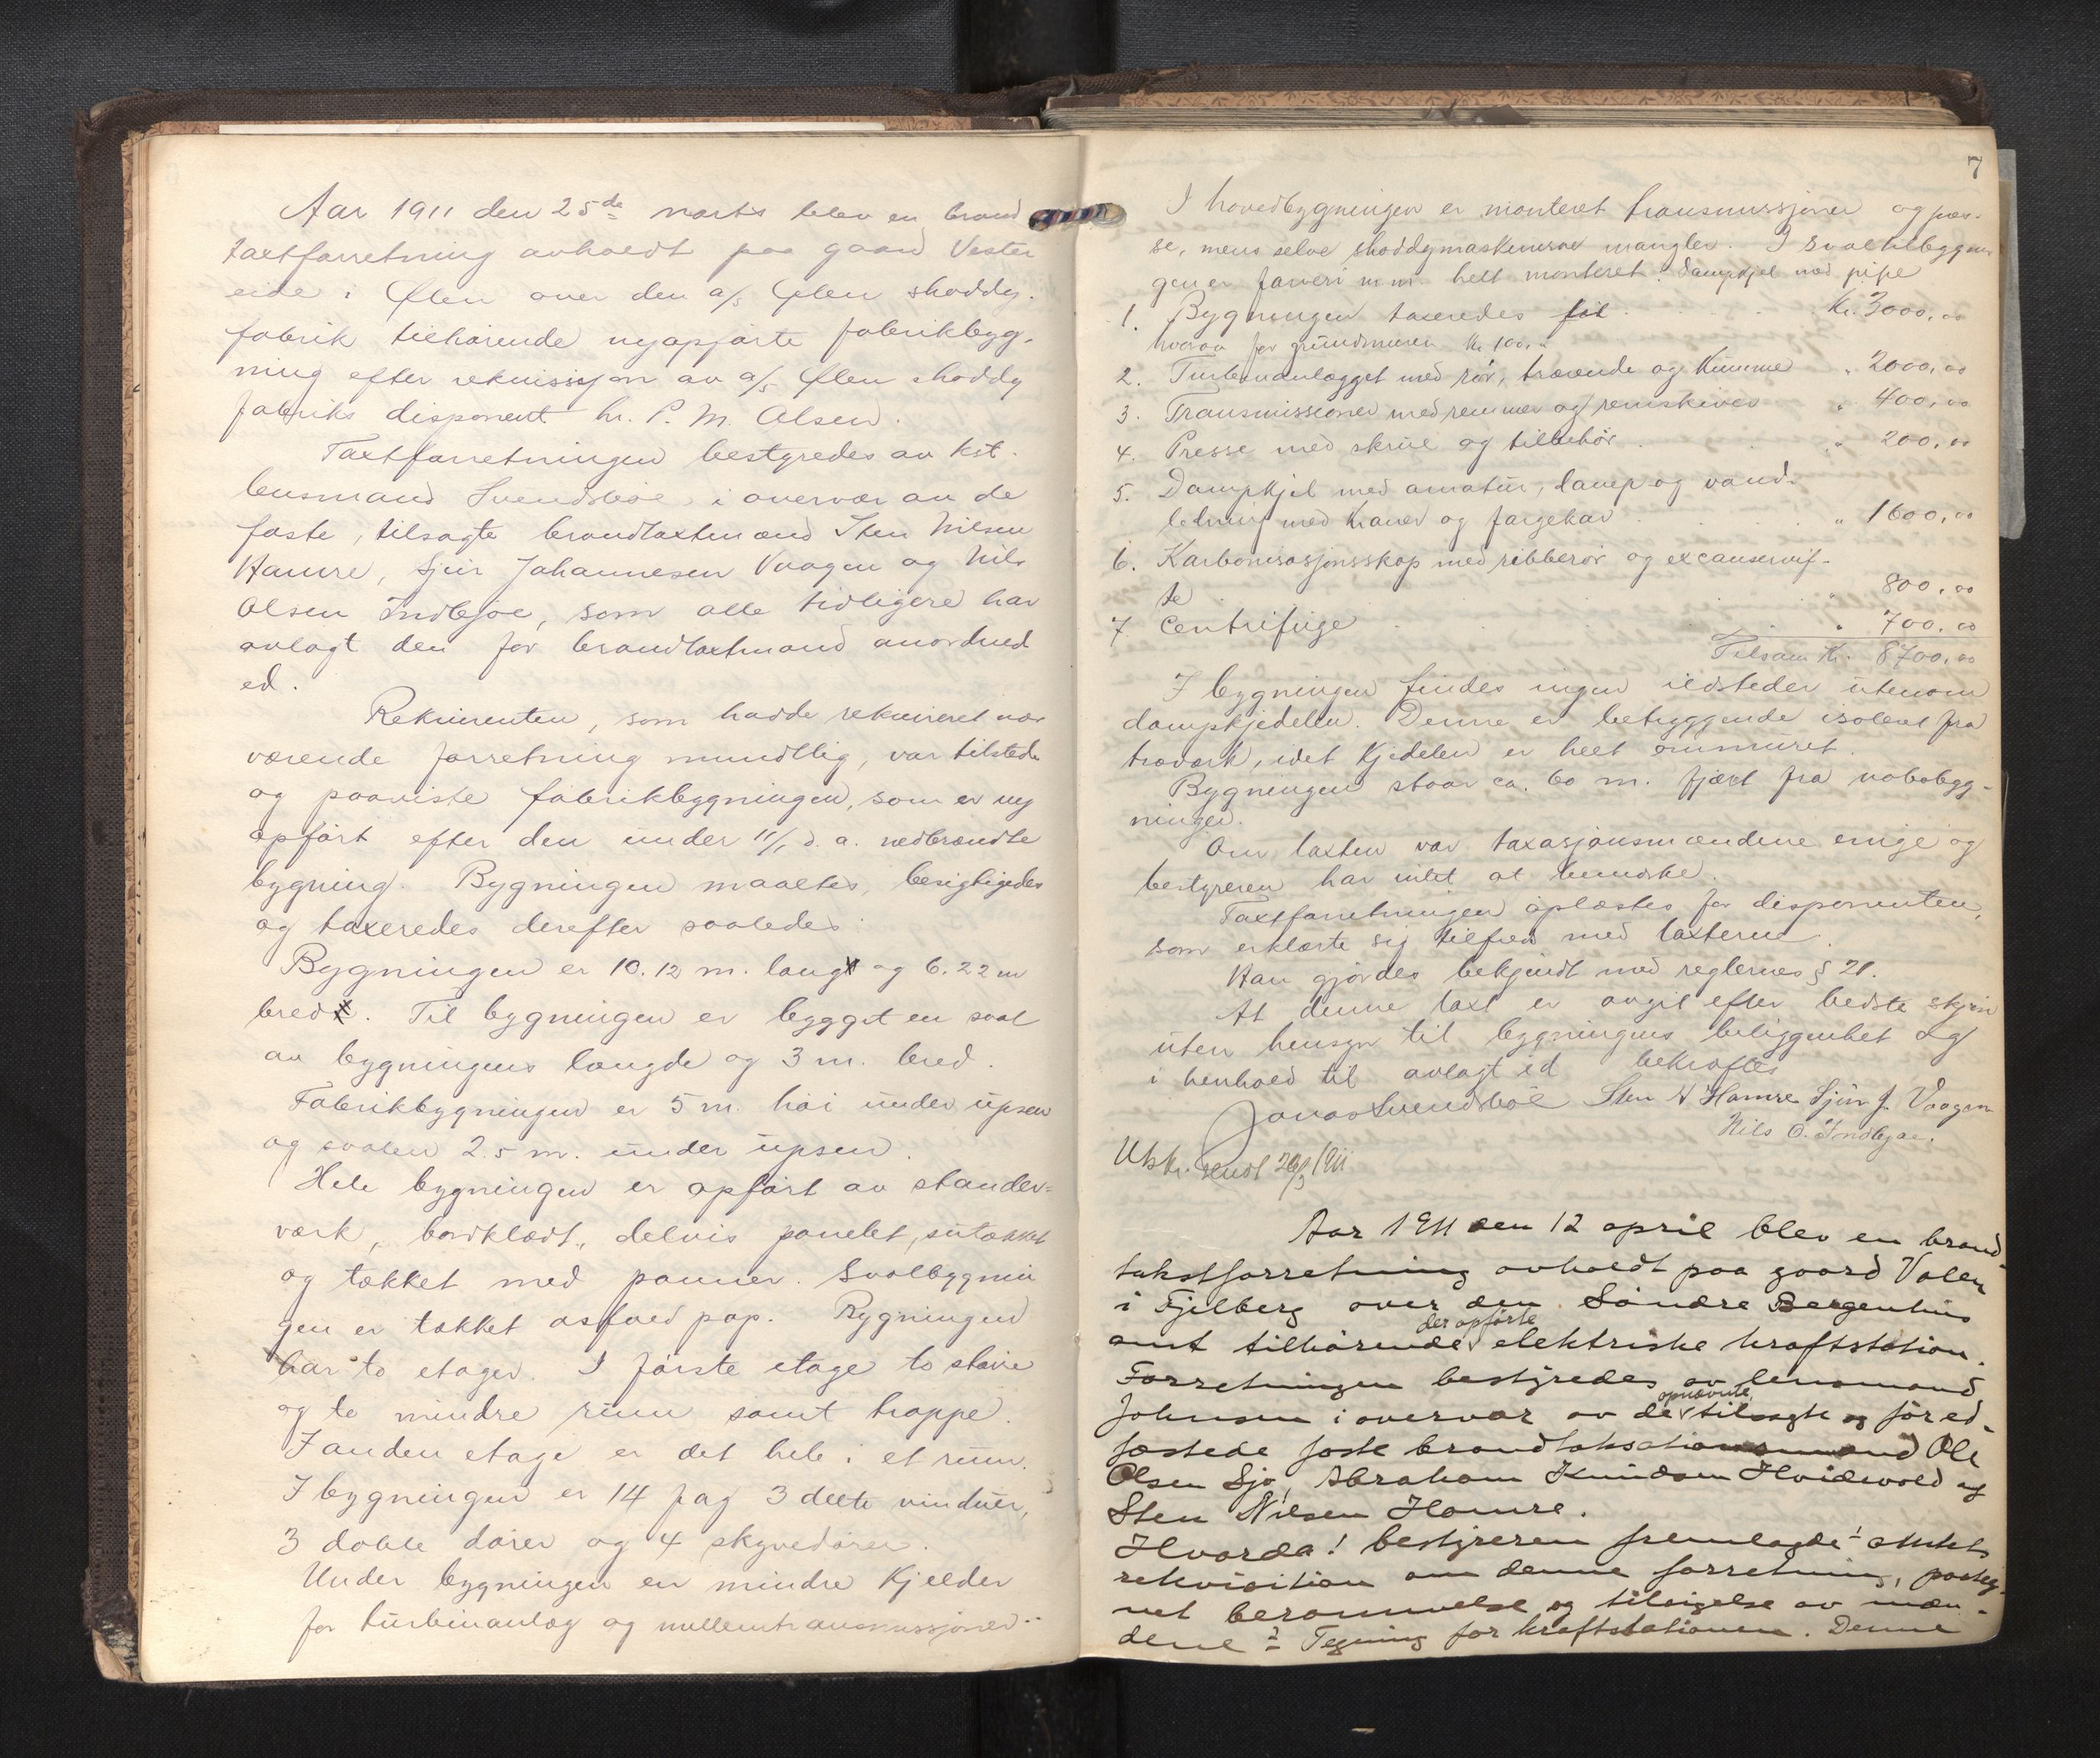 Aar 1911 den 25de marts blev en brand
taxtforretning avholdt paa gaard Vester
eide i Ølen over den a/s Ølen shoddy-
fabrik tilhørende nyopførte fabrikbyg-
ning efter rekvisisjon av a/s Ølen shoddy
fabriks disponent hr. P. M. Olsen.
Taxtforretningen bestyredes av kst.
lensmand Svendsbøe i overvær av de
faste, tilsagte brandtaxtmænd Sten Nilsen
Hamre, Sjur Johannesen Vaagen og Nils
Olsen Indbjoe, som alle tidligere har
avlagt den for brandtaxtmænd anordned
ed.
Rekvirenten, som hadde rekvireret nær
værende forretning mundtlig, var tilstede
og paaviste fabrikbygningen, som er ny
opført efter den under 11/1 d. a. nedbrændte
bygning. Bygningen maaltes, besigtigedes
og taxeredes derefter saaledes:
Bygningen er 10.12 m. lang og 6.22 m
bred. Til bygningen er bygget en sval
av bygningens længde og 3 m. bred.
Fabrikbygningen er 5 m. høi under upsen
og svalen 2.5 m. under upsen.
Hele bygningen er opført av stander-
verk, bordklædt, delvis panelet, sutækket
og tækket med panner. Svalbygnin
gen er tækket asfaltpap. Bygningen
har to etager. I første etage to større
og to mindre rum samt trappe.
I anden etage er det hele i et rum.
I bygningen er 14 fag 3 delte vinduer,
3 doble dører og 4 skyvedører.
Under bygningen en mindre kjelder
for turbinanlæg og mellemtransmissjoner.
7
I hovedbygningen er monteret transmissjoner og pres-
se, mens selve shoddymaskinerne mangler. I svaltilbygnin
gen er farveri m.m. helt monteret. Dampkjel med pipe
1. Bygningen taxeredes til . . . Kr. 3000,00
hvorav for grundmuren Kr 100,-
2. Turbinanlægget med rør, trævende og kumme " 2000,00
3. Transmissioner med remmer og remskiver " 400,00
4. Presse med skrue og tilbehør . . " 200,00
5. Dampkjel med armatur, damp og vand-
ledning med kraner og fargekar . . " 1600,00
6. Karbonisasjonsskap med ribberør og excauservif-
te . . . " 800,00
7 Centrifuge . . . " 700,00
Tilsam Kr. 8700,00
I bygningen findes ingen ildsteder utenom
dampkjedelen. Denne er betryggende isoleret fra
træverk, idet kjedelen er helt ommuret.
Bygningen staar ca. 60 m. fjært fra nabobyg-
ninger.
Om taxten var taxasjonsmændene enige og
bestyreren har intet at bemerke.
Taxtforretningen oplæstes for disponenten,
som erklærte sig tilfreds med taxterne.
Han gjordes bekjendt med reglernes § 21.
At denne taxt er avgit efter bedste skjøn
uten hensyn til bygningens beliggenhet og
i henhold til avlagt ed bekræftes
Jonas Svendsbøe Sten N Hamre Sjur J. Vaagen
Nils O. Indbjoe.
Utskr. sendt 29/3 1911
Aar 1911 den 12 april blev en brand-
takstforretning avholdt paa gaard Valen
i Fjelberg over den Søndre Bergenhus
der opførte
amt tilhørende elektriske kraftstation.
Forretningen bestyredes av lensmand
opnævnte
Johnsen i overvær av de tilsagte og før ed-
fæstede faste brandtaksationsmænd Ole
Olsen Sjo, Abraham Knudsen Hvidevold og
Sten Nilsen Hamre.
Hvorda! bestyreren fremlagde 1 amtets
rekvisition om denne forretning, paateg-
net berammelse og tilsigelse av mæn-
dene 2 Tegning for kraftstationen. Denne